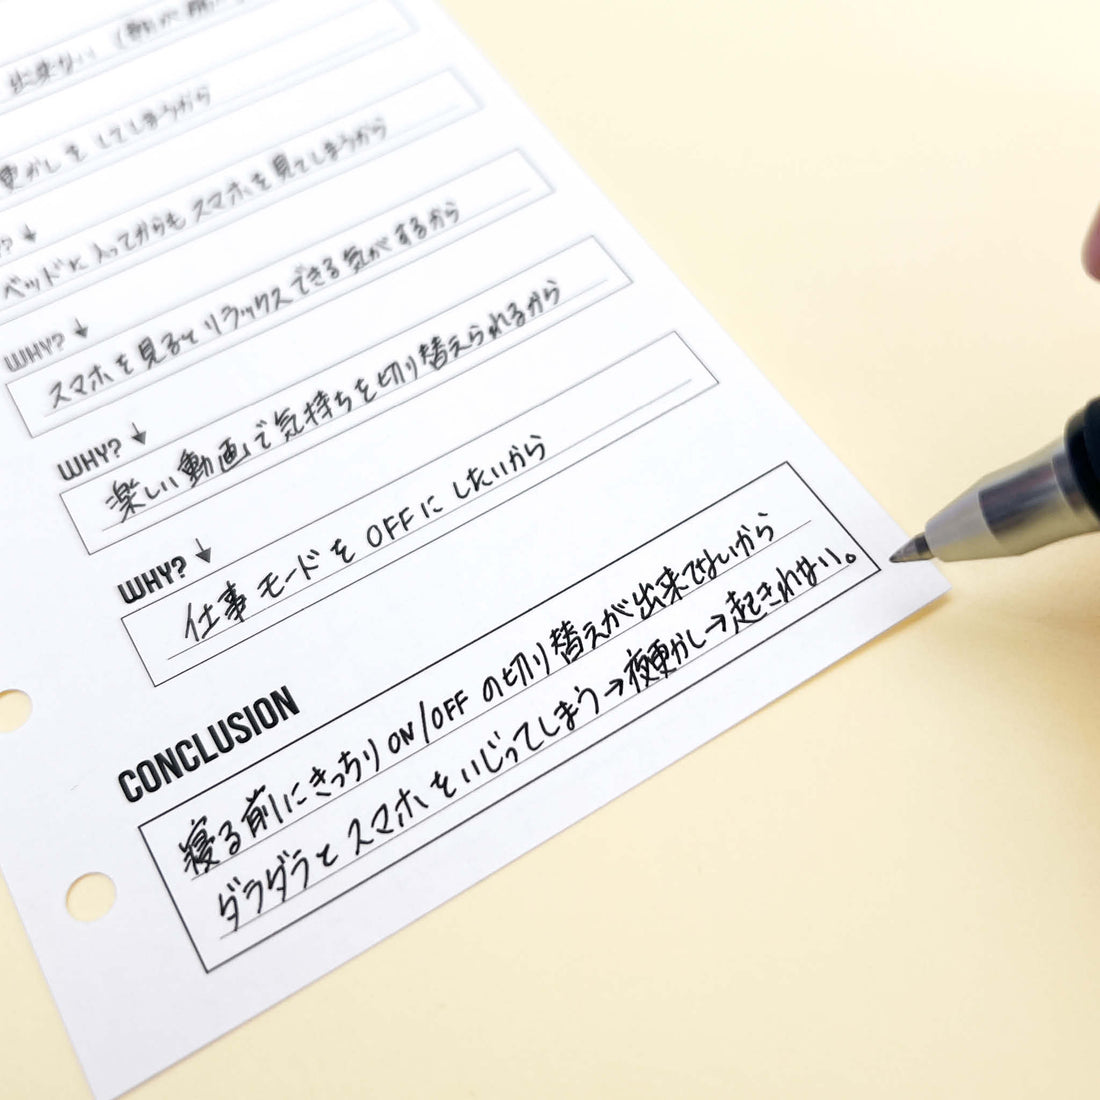 出来ない
更かしをしてしまうから
? ↓
ベッドに入ってからもスマホを見てしまうから
WHY? ↓
スマホを見るとリラックスできる気がするから
WHY? ↓
楽しい動画で気持ちを切り替えられるから
WHY? ↓
仕事モードをOFFにしたいから
CONCLUSION
寝る前にきっちりON/OFFの切り替えが出来てないから
ダラダラとスマホをいじってしまう→夜更かし→起きれない。